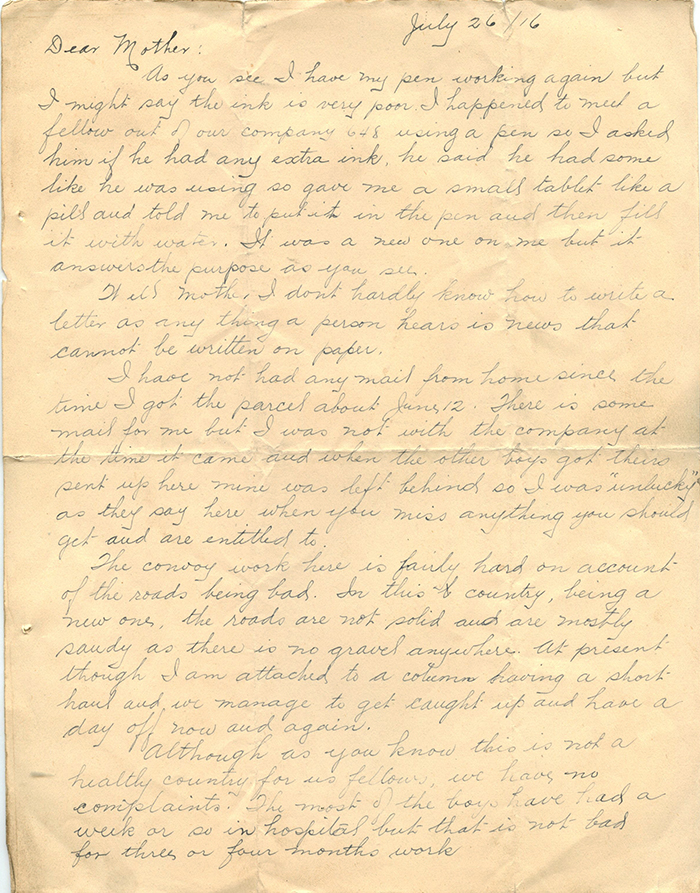 July 26/16
Dear Mother:
As you see I have my pen working again but
I might say the ink is very poor. I happened to meet a
fellow out of our company 648 using a pen so I asked
him if he had any extra ink, he said he had some
like he was using so gave me a small tablet like a
pill and told me to put it in the pen and then fill
it with water. It was a new one on me but it
answers the purpose as you see.
Well Mother, I dont hardly know how to write a
letter as any thing a person hears is news that
cannot be written on paper.
I have not had any mail from home since the
time I got the parcel about June 12. There is some
mail for me but I was not with the company at
the time it came and when the other boys got theirs
sent up here mine was left behind so I was "unlucky"
as they say here when you miss anything you should
get and are entitled to.
The convoy work here is fairly hard on account
of the roads being bad. In this country, being a
new one, the roads are not solid and are mostly
sandy as there is no gravel anywhere. At present
though I am attached to a column having a short
haul and we manage to get caught up and have a
day off now and again.
Although as you know this is not a
healthy country for us fellows, we have no
complaints. The most of the boys have had a
week or so in hospital but that is not bad
for three or four months work